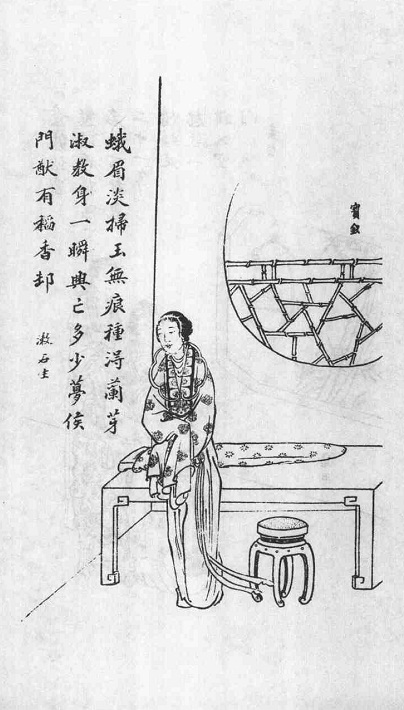 寶釵
蛾眉淡掃玉無痕種淂蘭芽
淑教身一瞬興亡多少夢侯
門猷有稻香邨
漱石生